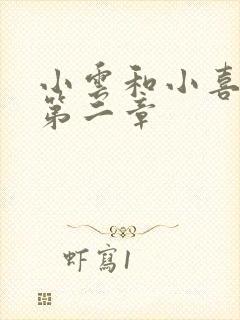 小雲和小喜
第二章
虾寫1